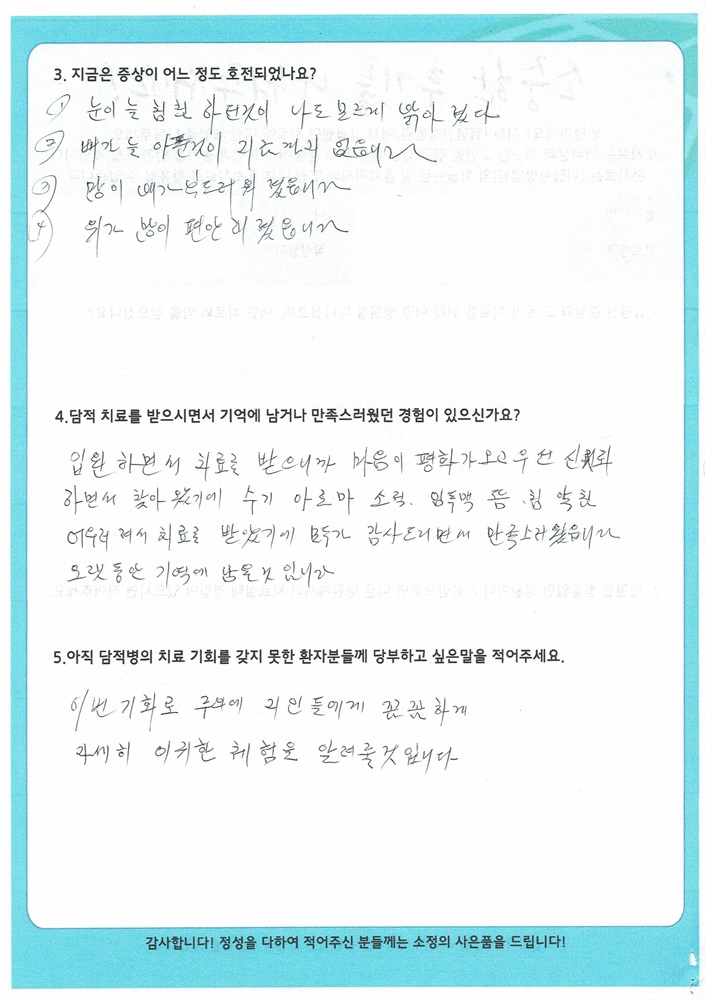 3. 지금은 증상이 어느 정도 호전되었나요?
① 눈이 늘 침침 하던것이 나도 모르게 밝아 졌다
② 배가 늘 아픈것이 없습니다
③ 많이 배가 부드러워 졌습니다
④ 위가 많이 편안 해 졌습니다
4.담적 치료를 받으시면서 기억에 남거나 만족스러웠던 경험이 있으신가요?
입원 하면서 치료를 받으니까 마음이 평화가 오고 우선 신뢰
하면서 찾아 왔기에 수기 아로마 소적. 뜸. 침 약침
어우러 져서 치료를 받았기에 모두가 감사드리면서 만족스러웠습니다
오랫동안 기억에 남을것 입니다
5.아직 담적병의 치료 기회를 갖지 못한 환자분들께 당부하고 싶은말을 적어주세요.
이번 기회로 주위에 지인들에게 꼼꼼하게
자세히 이귀한 체험을 알려줄것입니다
감사합니다! 정성을 다하여 적어주신 분들께는 소정의 사은품을 드립니다!